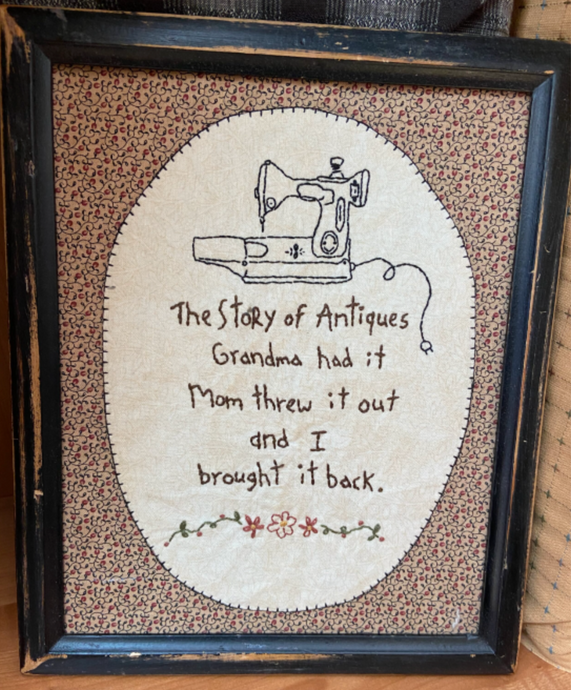 The Story of Antiques
Grandma had it
Mom threw it out
and I
brought it back.